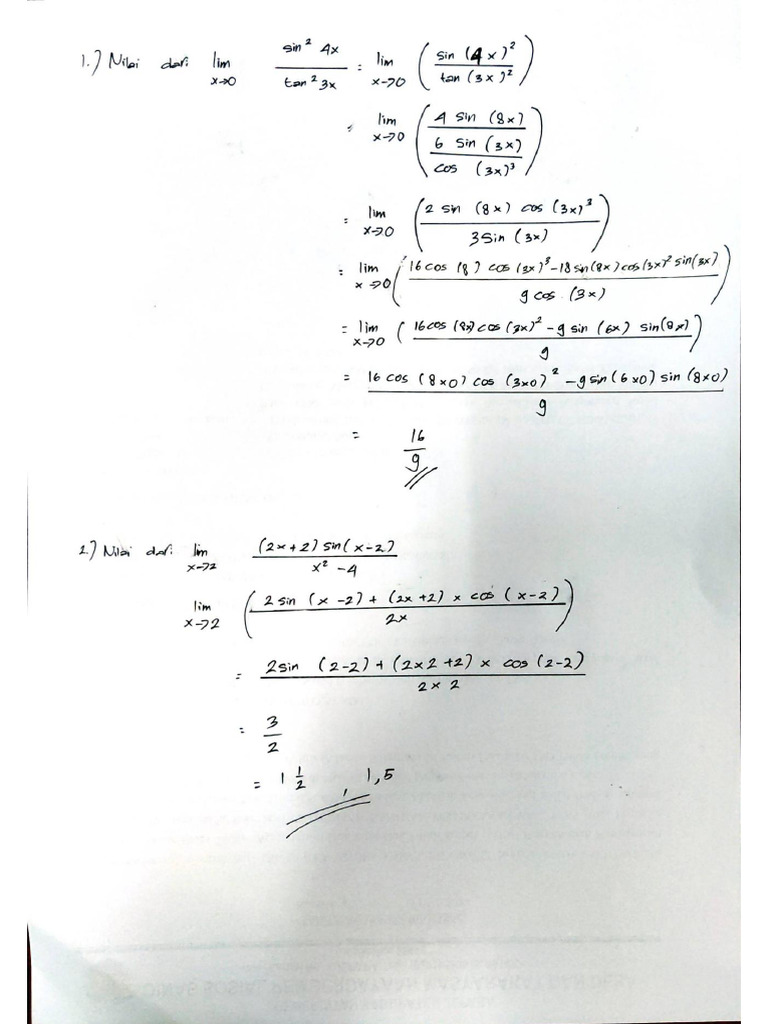 1.) Nilai dari lim x→0 sin² 4x / tan² 3x = lim x→0 ( sin (4x)² / tan (3x)² )
= lim x→0 ( 4 sin (8x) / ( 6 sin (3x) / cos (3x)³ ) )
= lim x→0 ( 2 sin (8x) cos (3x)³ / 3 sin (3x) )
= lim x→0 ( 16 cos (8) cos (3x)³ - 18 sin (8x) cos (3x)² sin (3x) / 9 cos (3x) )
= lim x→0 ( 16 cos (8x) cos (3x)² - 9 sin (6x) sin (8x) / 9 )
= 16 cos (8×0) cos (3×0)² - 9 sin (6×0) sin (8×0) / 9
= 16 / 9
2.) Nilai dari lim x→2 (2x+2) sin (x-2) / x² - 4
lim x→2 ( 2 sin (x-2) + (2x+2) × cos (x-2) / 2x )
= 2 sin (2-2) + (2×2+2) × cos (2-2) / 2 × 2
= 3 / 2
= 1 1/2 , 1,5